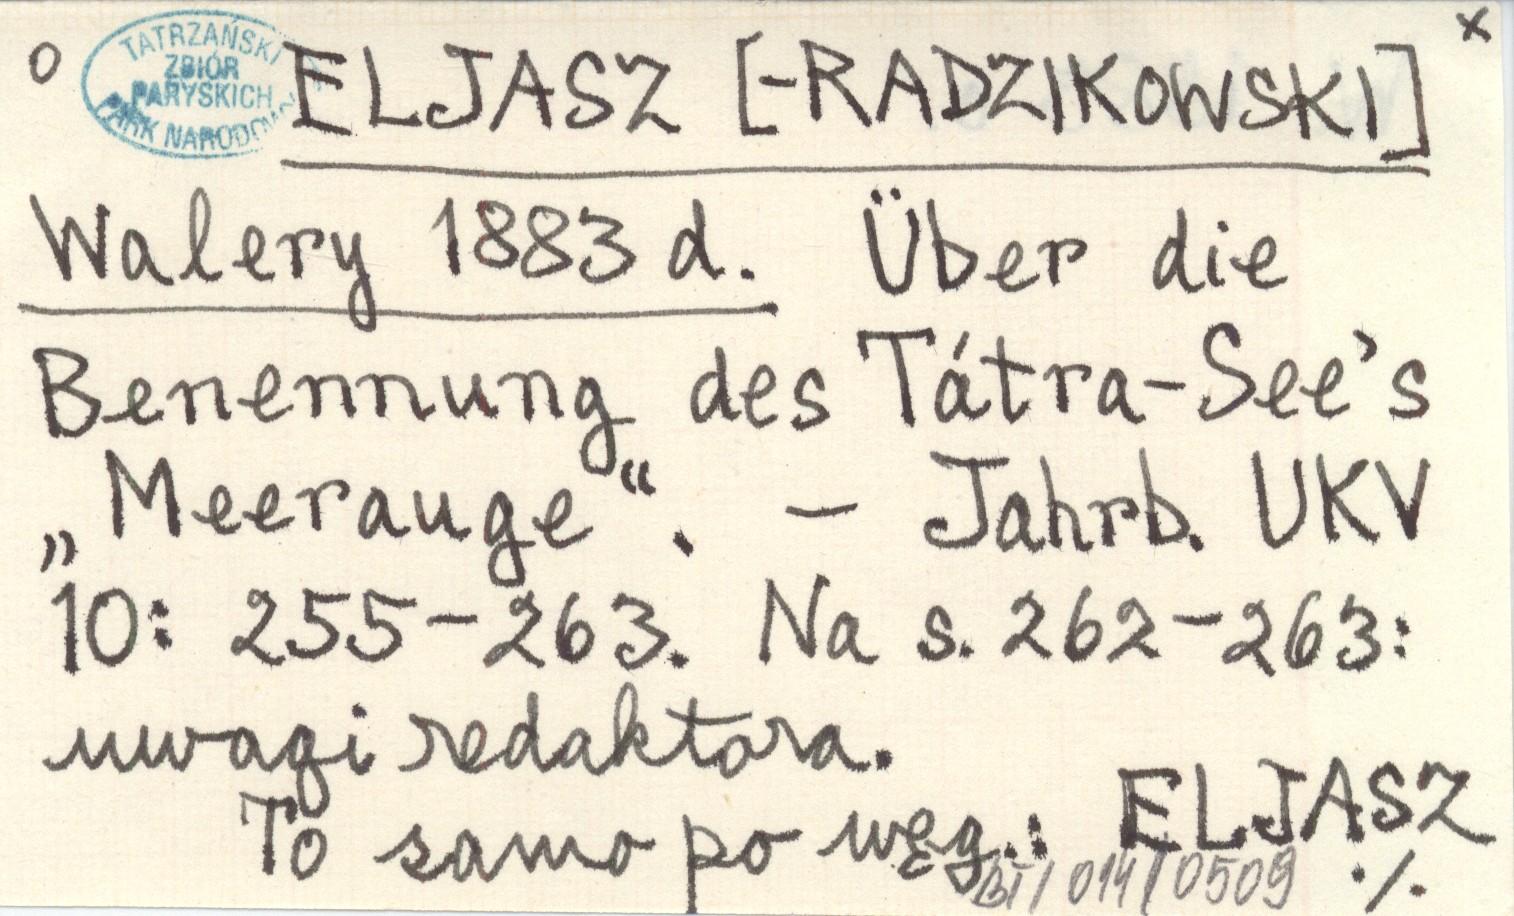 x
o TATRZAŃSKI
ZBIÓR
PARYSKICH
PARK NARODOWY
ELJASZ [-RADZIKOWSKI]
Walery 1883 d. Über die
Benennung des Tátra-See's
„Meerauge“. – Jahrb. UKV
10: 255–263. Na s. 262–263:
uwagi redaktora.
To samo po węg.: ELJASZ
BT/014/0509 ./.